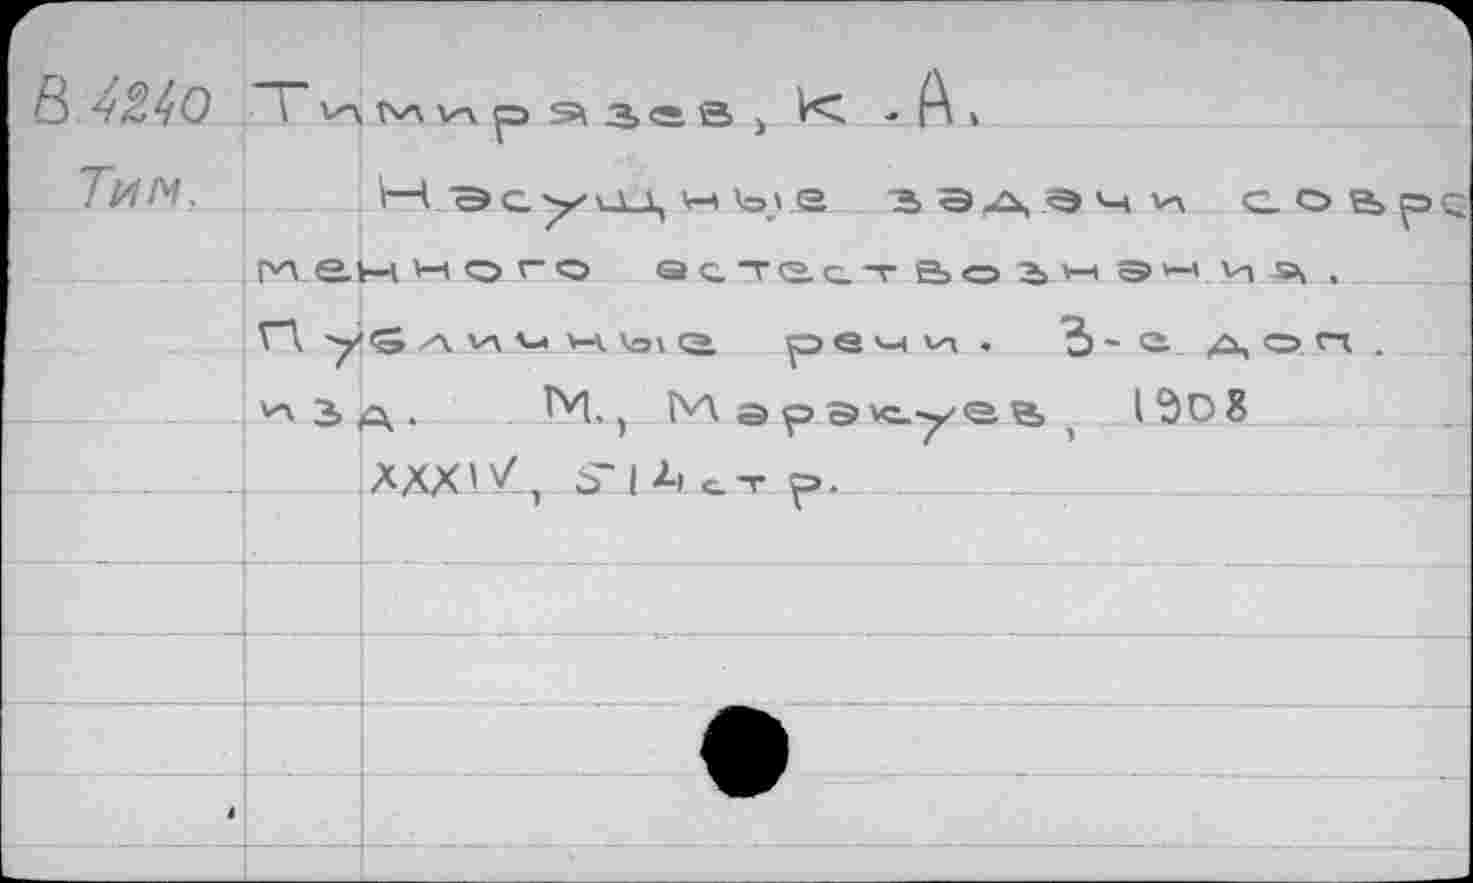 В 4240 Тимирязев, К.А.
Тим. Насущные задачи совре
менного естествознания.
Публичные речи. 3-е доп.
изд. М., Маракуев, 1908
XXXIV, 512 стр.